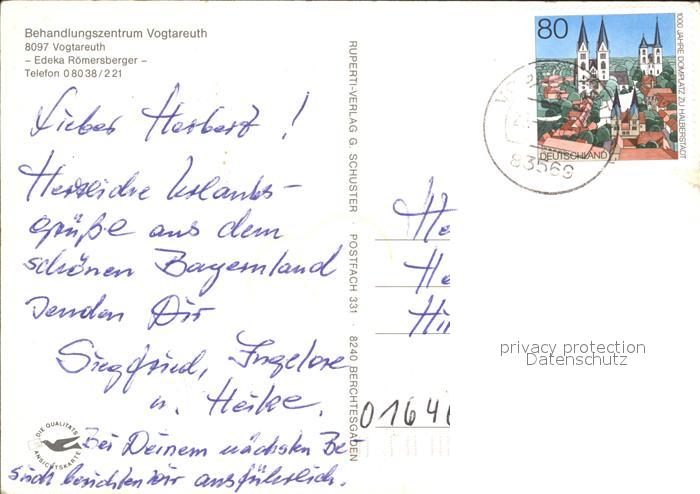 Behandlungszentrum Vogtareuth
8097 Vogtareuth
– Edeka Römersberger –
Telefon 08038/221
Lieber Herbert!
Herzliche Urlaubs-
grüße aus dem
schönen Bayernland
senden Dir
Siegfried, Ingelore
u. Heike.
Bei Deinem nächsten Be-
such berichten wir ausführlich.
DIE QUALITÄTS
ANSICHTSKARTE
RUPERTI-VERLAG G. SCHUSTER · POSTFACH 331 · 8240 BERCHTESGADEN
80
DEUTSCHLAND
1000 JAHRE DOMPLATZ ZU HALBERSTADT
83569
He
He
Hi
0164
privacy protection
Datenschutz